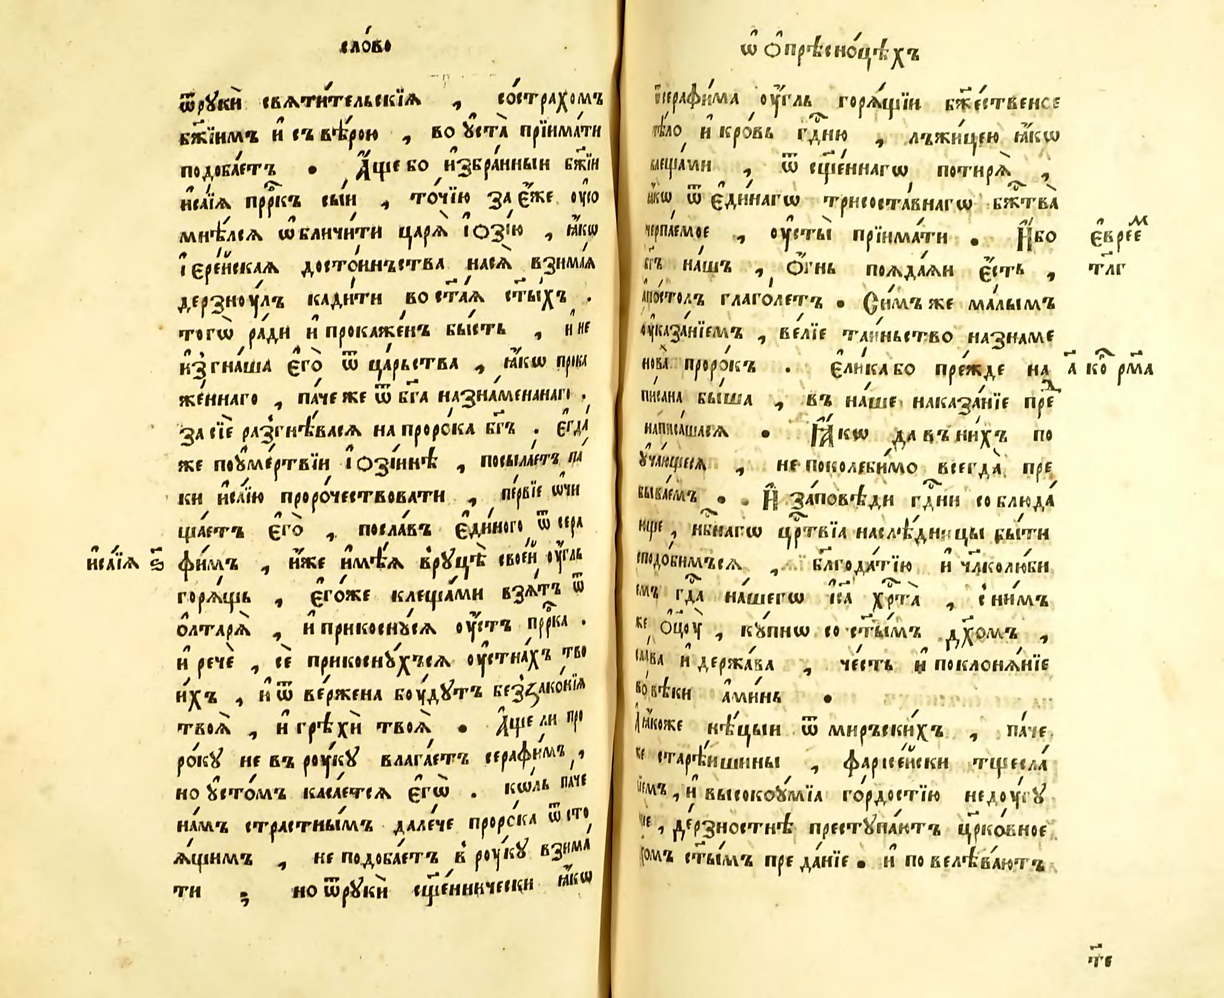 сло́во
ѿрꙋкѝ свѧти́тельскїѧ , со́страхомъ
бж҃їимъ и҆ съвѣ́рою , во ᲂу҆ста̀ прїима́ти
подоба́етъ . А҆́ще бо и҆збра́нныи бж҃їи
и҆са́їѧ прⷪ҇ркъ сы́и , то́чїю за є҆́же ᲂусꙋ
мнѣ́лсѧ ѡ҆бличи́ти царѧ̀ і҆ѻзі́ю , ꙗ҆́кѡ
і҆ере́йскаѧ досто́инъства насѧ̀ взима́ѧ
дерзнꙋ́лъ кади́ти во ст҃а́ѧ ст҃ы́хъ .
тогѡ̀ ра́ди и҆ прокаже́нъ бы́сть , и҆ не
и҆згна́ша є҆го̀ ѿ ца́рьства , ꙗ҆́кѡ прока
же́ннаго , па́че же ѿ бг҃а назна́менанаго .
за сїѐ разгнѣ́васѧ на проро́ка бг҃ъ . є҆гда́
же поᲂуме́ртвїи і҆ѻзі́инѣ , посыла́етъ па́
ки и҆са́їю проро́чествовати , пе́рвїе ѡ҆чи
ща́етъ є҆го̀ , посла́въ є҆ди́ного ѿ сера
и҆са́їѧ ѕ҃
фи́мъ , и҆́же и҆мѣ́ѧ в̾рꙋцѣ̀ свое́й ᲂу҆́гль
горѧ́щь , є҆го́же клеща́ми взѧ́тъ ѿ
ѻ҆лтарѧ̀ , и҆ прикоснꙋ́сѧ ᲂу҆́стъ прⷪ҇рка .
и҆ речѐ , сѐ прикоснꙋ́хъсѧ ᲂу҆стна́хъ тво
и҆́хъ , и҆ ѿ ве́ржена бꙋ́дꙋтъ беззако́нїѧ
твоѧ̀ , и҆ грѣхѝ твоѧ̀ . А҆́ще ли про
ро́кꙋ не въ рꙋ́кꙋ влага́етъ серафи́мъ ,
но ᲂу҆сто́мъ каса́етсѧ є҆гѡ̀ . ко́ль па́че
на́мъ стра́стнымъ дале́че проро́ка ѿсто
ѧ́щимъ , не подоба́етъ в̾ рꙋ́кꙋ взима́
ти ; но ѿрꙋкѝ сщ҃е́ннически ꙗ҆́кѡ
ѡ҆ ѻ҆прѣсно́цѣхъ
ѿ серафи́ма ᲂу҆́гль горѧ́щїи бж҃е́ственое
тѣ́ло и҆ кро́вь гдⷭ҇ню , лъжи́цею ꙗ҆́кѡ
клеща́ми , ѿ сщ҃е́ннагѡ потирѧ̀ ,
ꙗ҆́кѡ ѿ є҆ди́нагѡ трисоста́внагѡ бж҃тва̀
черпа́емое , ᲂу҆сты̀ прїима́ти . И҆́бо
є҆вре́ем
бг҃ъ на́шъ , ѻ҆́гнь поѧда́ѧи є҆́сть ,
т҃лг
апо́столъ глаго́летъ . Си́мъ же ма́лымъ
ᲂу҆каза́нїемъ , ве́лїе таи́ньство назнаме
нова̀ проро́къ . є҆ли́ка бо пре́жде на
а҃ ко рма
пи́сана бы́ша , въ на́ше наказа́нїе пре
написа́шасѧ . Ꙗ҆́кѡ да въ ни́хъ по
ᲂуча́ющесѧ , непоколеби́мо всегда̀ пре
быва́емъ . И҆ за́повѣди гдⷭ҇ни соблюда́
юще , нб҃нагѡ црⷭ҇твїѧ наслѣ́дницы бы́ти
сподо́бимъсѧ , бл҃года́тїю и҆ чл҃колю́би
емъ гдⷭ҇а на́шегѡ і҆с҃а хрⷭ҇та̀ , с ни́мъ
же ѻ҆ц҃ꙋ̀ , кꙋ́пнѡ со ст҃ы́мъ дх҃омъ ,
сла́ва и҆ держа́ва , че́сть и҆ поклонѧ́нїе
во вѣ́ки а҆ми́нь .
Ꙗ҆́коже нѣ́цыи ѿ миръски́хъ , па́че
же старѣ́ишины , фарисе́йски тщесла́
їемъ , и҆ высокоᲂу́мїѧ го́рдостїю недꙋ́гꙋ
ще , де́рзностнѣ престꙋпа́ютъ цр҃ко́вное
ст҃ы́мъ преда́нїе . и҆ повелѣва́ютъ
т҃е